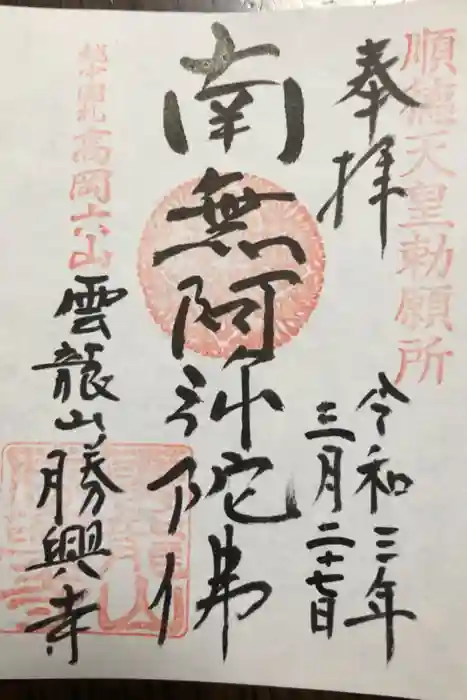 順徳天皇勅願所
奉拝
令和三年
三月二十七日
南無阿弥陀佛
高岡古山
雲龍山勝興寺